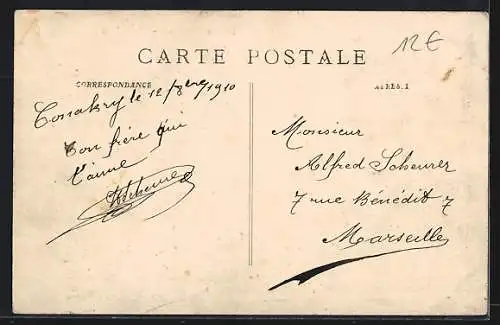 12€
CARTE POSTALE
CORRESPONDANCE
Conakry le 12 1910
Ton frère qui
t'aime
Monsieur
Alfred Scheurer
7 rue Bénédit 7
Marseille